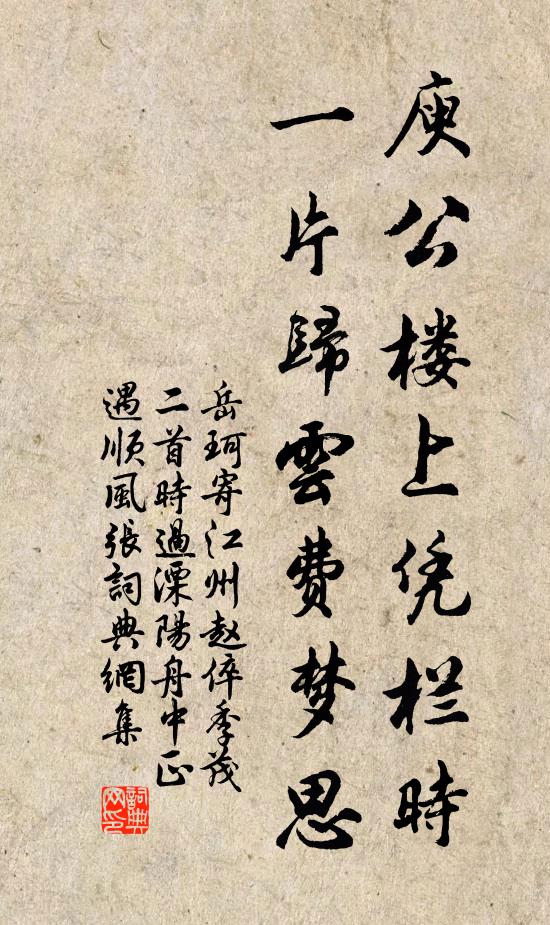 庾公楼上凭栏時
一片歸雲費梦思
岳珂寄江州赵倅季茂
二首時過溧陽舟中正
遇順風張詞典網集
詞典网印